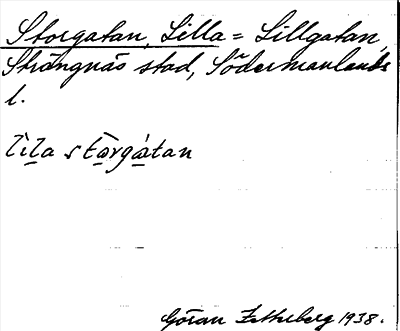 Storgatan, Lilla = Lillgatan,
Strängnäs stad, Södermanlands
l.
lìl̠a stɑ̀rgátan
Göran Zetterberg 1938.